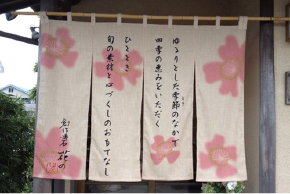 ゆるりとした季節のなかで
四季の恵みをいただく
ひととき
旬の素材と心づくしのおもてなし
花の